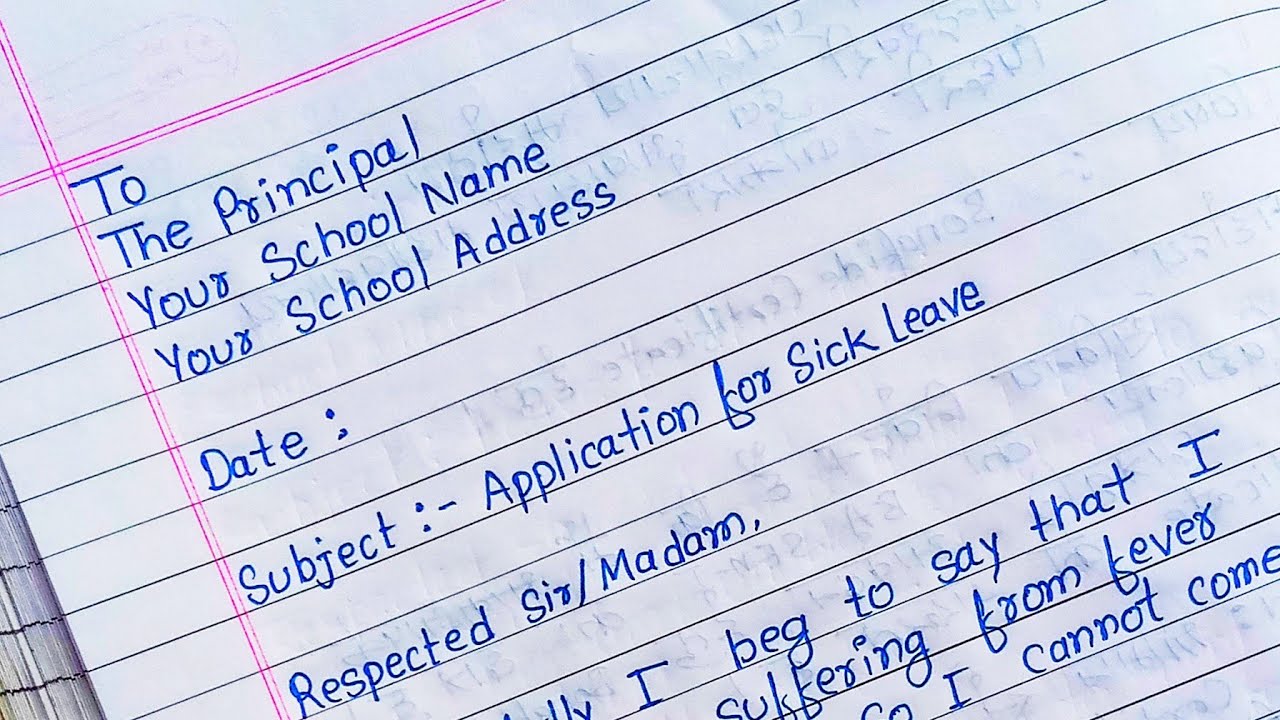 To
The Principal
Your School Name
Your School Address
Date :
Subject :- Application for Sick Leave
Respected Sir/Madam,
I beg to say that I
suffering from fever
so I cannot come